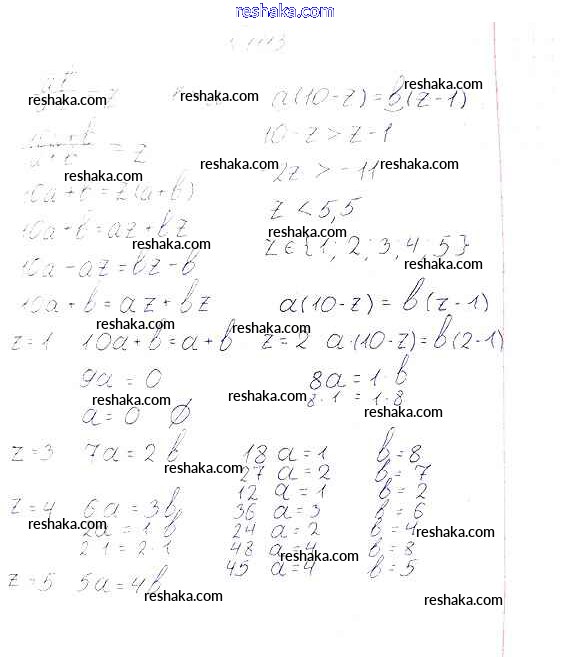 reshaka.com
1113
reshaka.com reshaka.com a(10-z)=b(z-1) reshaka.com
= z 10-z>z-1
reshaka.com reshaka.com 2z > -11 reshaka.com
10a+b=z(a+b)
z < 5,5
10a+b=az+bz reshaka.com reshaka.com
z∈{1; 2; 3; 4; 5}
10a-az=bz-b reshaka.com
10a+b=az+bz a(10-z)=b(z-1)
reshaka.com reshaka.com
z=1 10a+b=a+b z=2 a·(10-z)=b(2-1)
9a=0 8a=1·b
reshaka.com reshaka.com 8·1=1·8
a=0 ∅ reshaka.com
z=3 7a=2b 18 a=1 b=8
reshaka.com 27 a=2 b=7
12 a=1 b=2
z=4 6a=3b 36 a=3 b=6
reshaka.com 2a=1b 24 a=2 b=4 reshaka.com
2·1=2·1 48 a=4 b=8
reshaka.com
z=5 5a=4b 45 a=4 b=5
reshaka.com reshaka.com